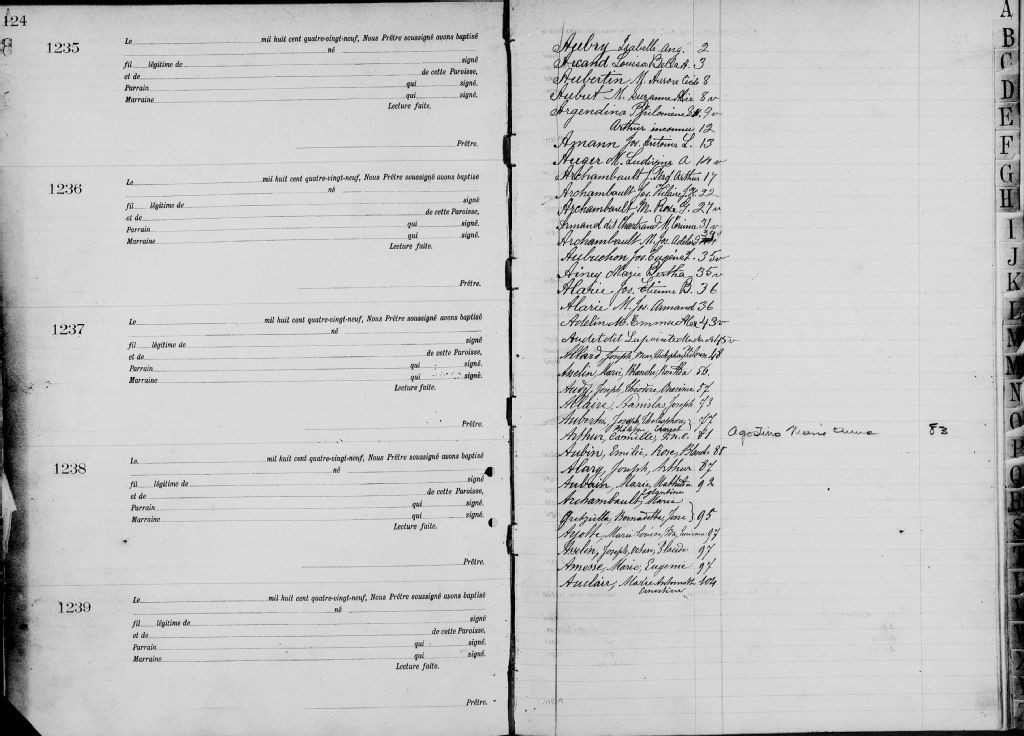 124
1235
Le mil huit cent quatre-vingt-neuf, Nous Prêtre soussigné avons baptisé
né
fil légitime de signé
et de de cette Paroisse,
Parrain qui signé.
Marraine qui signé.
Lecture faite.
Prêtre.
1236
Le mil huit cent quatre-vingt-neuf, Nous Prêtre soussigné avons baptisé
né
fil légitime de signé
et de de cette Paroisse,
Parrain qui signé.
Marraine qui signé.
Lecture faite.
Prêtre.
1237
Le mil huit cent quatre-vingt-neuf, Nous Prêtre soussigné avons baptisé
né
fil légitime de signé
et de de cette Paroisse,
Parrain qui signé.
Marraine qui signé.
Lecture faite.
Prêtre.
1238
Le mil huit cent quatre-vingt-neuf, Nous Prêtre soussigné avons baptisé
né
fil légitime de signé
et de de cette Paroisse,
Parrain qui signé.
Marraine qui signé.
Lecture faite.
Prêtre.
1239
Le mil huit cent quatre-vingt-neuf, Nous Prêtre soussigné avons baptisé
né
fil légitime de signé
et de de cette Paroisse,
Parrain qui signé.
Marraine qui signé.
Lecture faite.
Prêtre.
Aubry Isabelle Ang. 2
Arcand Louisa Bella A. 3
Aubertin M. Aurore Cecile 8
Aubut M. Suzanne Alice 8v
Argendina Philomène 9v
Arthur inconnu 12
Amann Jos. Antoine L. 13
Auger M. Ludivine A 14v
Archambault J. Arthur 17
Archambault Jos. Hilaire 32
Archambault M. Rose G. 27v
Armand dit Chartrand M. Corinne 31v
Archambault M. Jos. 39
Aubuchon Jos. Eugène L. 35v
Ainey Marie Bertha 35v
Alarie Jos. Etienne B. 36
Alarie M. Jos. Armand 36
Adelin M. Emma Alex 43v
Audet dit Lapointe 45v
Allard, Joseph, 48
Asselin, Marie, Blanche, 56
Audy, Joseph, Théodore, 57
Allaire, Stanislas, Joseph, 73
Aubertin, Joseph, 77
Philippe Ernest
Arthur, Camille, 81 Agostino Marie Anna 83
Aubin, Emilie, Rose, Blanche 85
Alary, Joseph, Arthur 87
Aubain, Marie, Mathilda 92
Eglantine
Archambault, Marie
Grizzilla, Bernadette, 95
Ayotte, Marie Louise, 97
Asselin, Joseph, Claude 97
Amesse, Marie, Eugenie 97
Auclair, Marie Antoinette 104
Ernestine
A
B
C
D
E
F
G
H
I
J
K
L
M
N
O
P
Q
R
S
T